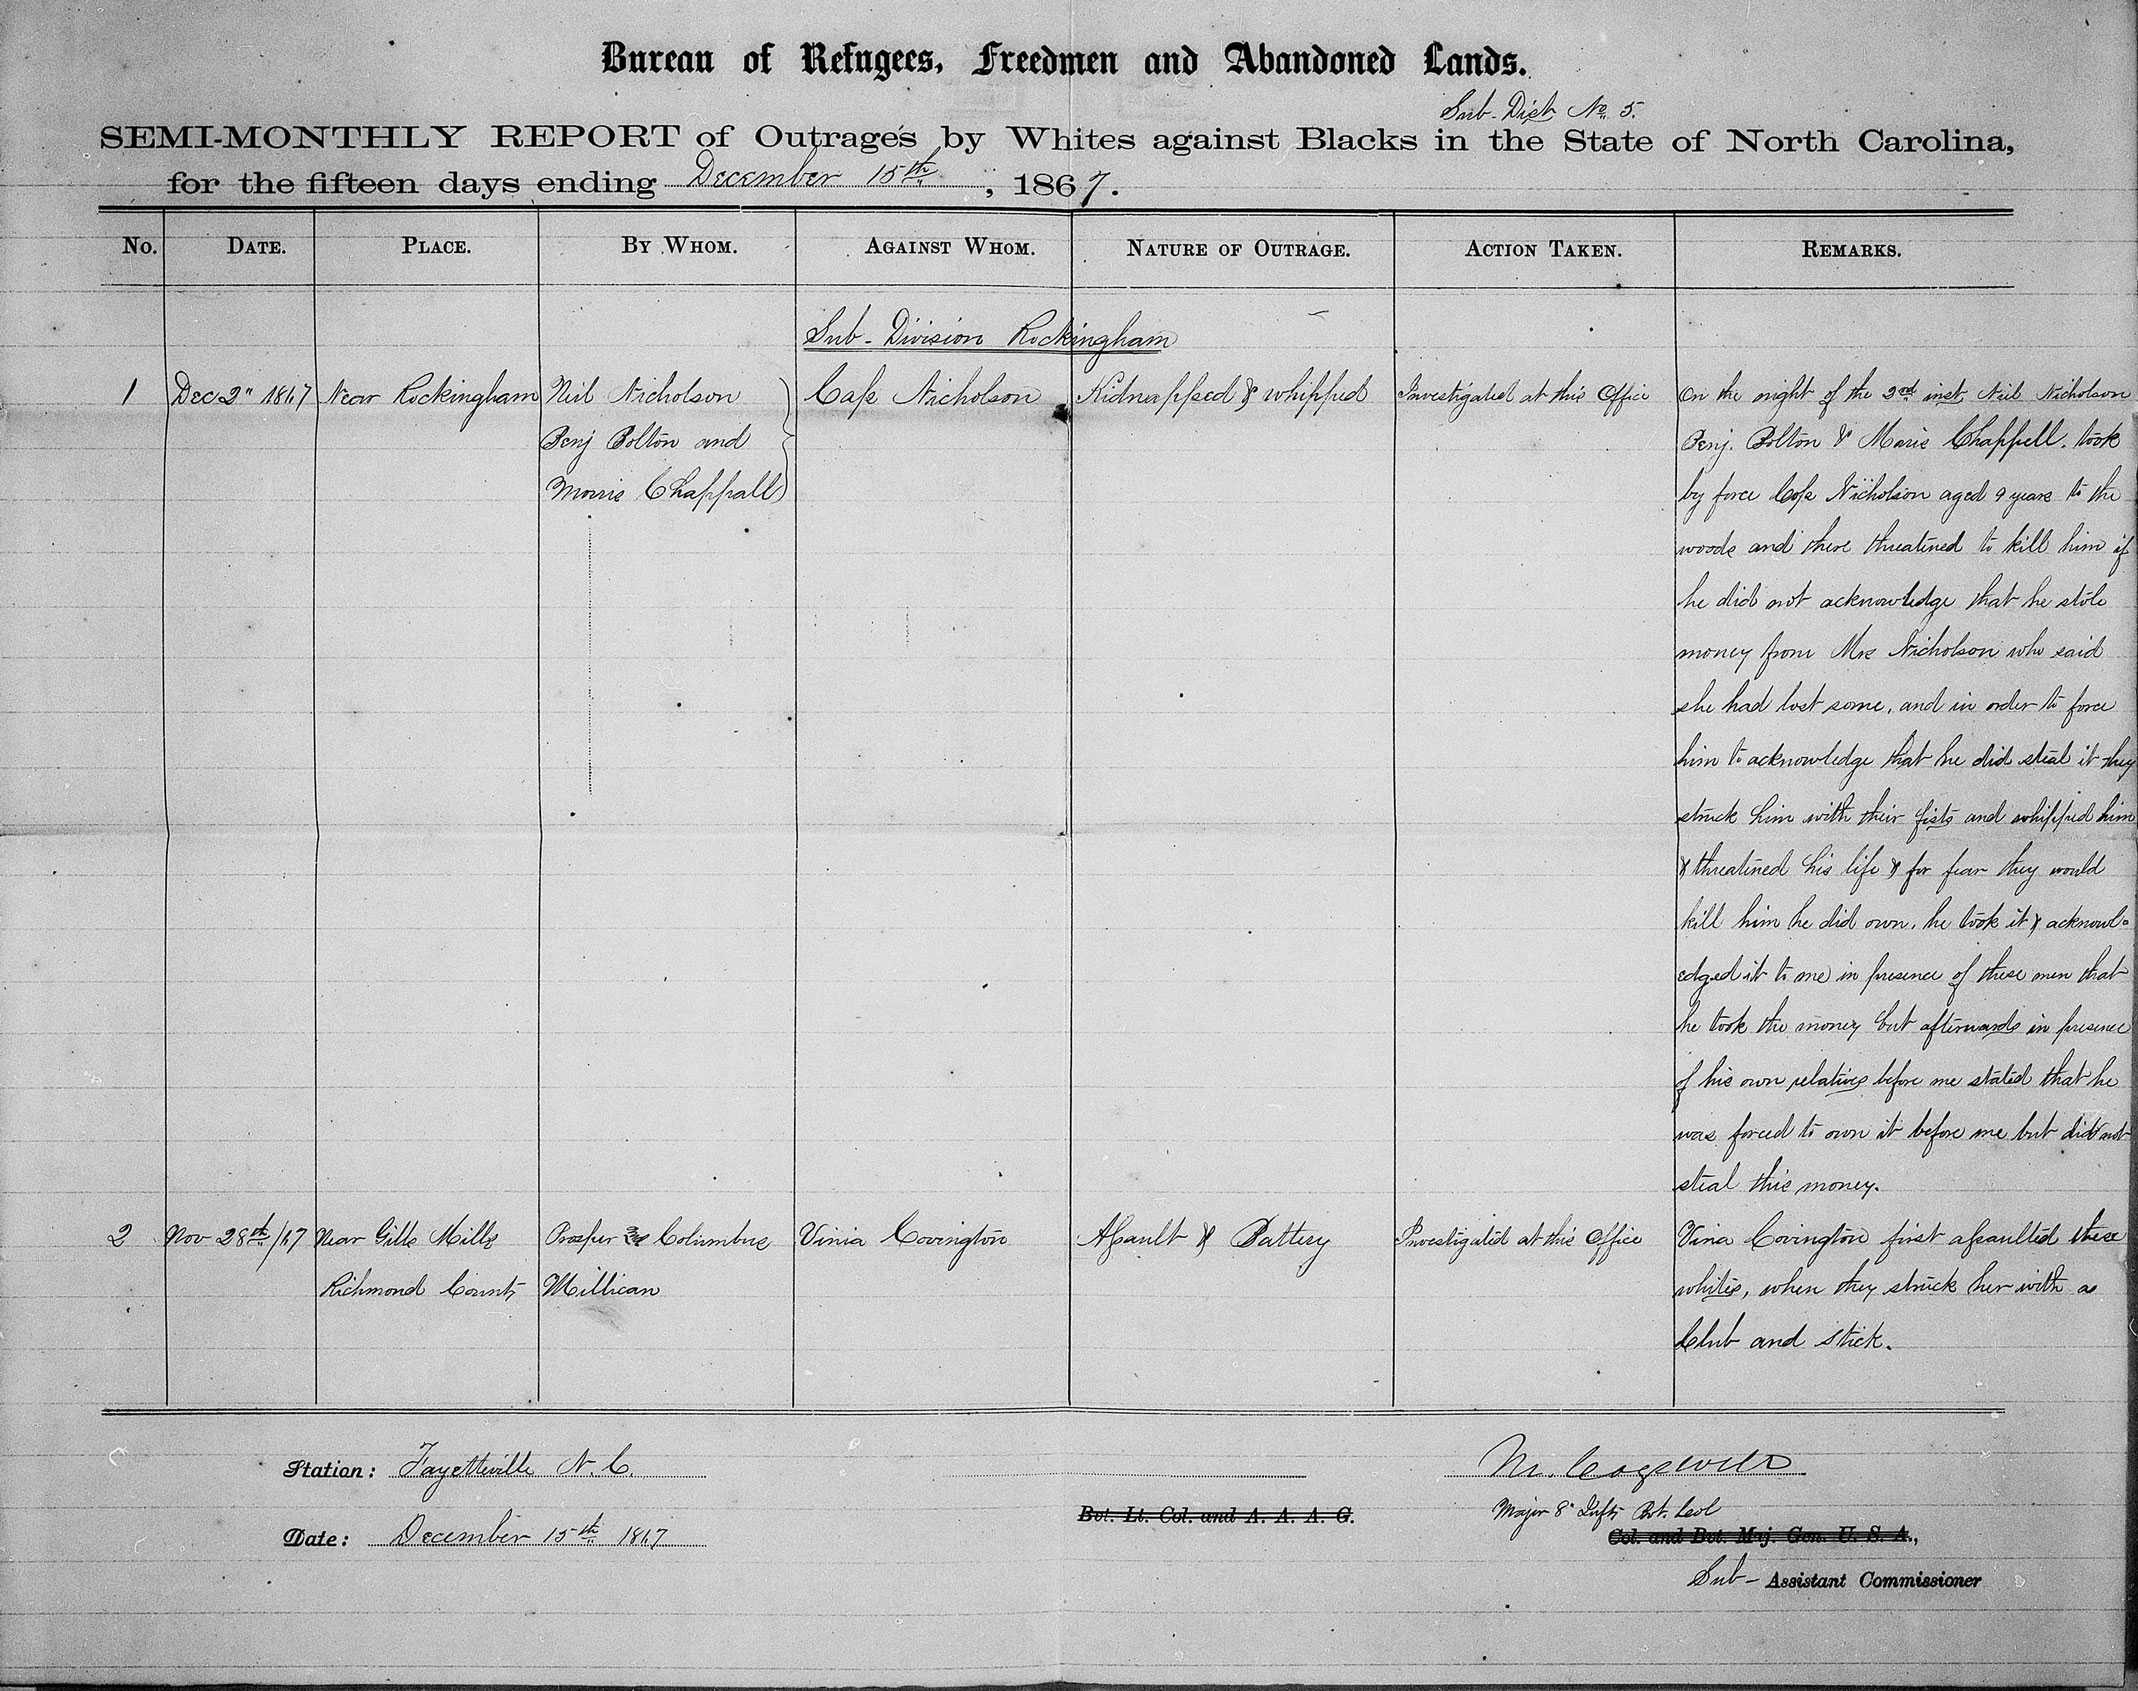 Bureau of Refugees, Freedmen and Abandoned Lands.
Sub-Dist No. 5.
SEMI-MONTHLY REPORT of Outrages by Whites against Blacks in the State of North Carolina,
for the fifteen days ending December 15th, 1867.
No. DATE. PLACE. BY WHOM. AGAINST WHOM. NATURE OF OUTRAGE. ACTION TAKEN. REMARKS.
Sub-Division Rockingham
1 Dec 2" 1867 Near Rockingham Neil Nicholson Nicholson Kidnapped & whipped Investigated at this Office On the night of the 2nd inst Neil Nicholson
Benj Bolton and Benj. Bolton & Chappell. took
Morris Chappall by force Nicholson aged 9 years to the
woods and there threatened to kill him if
he did not acknowledge that he stole
money from Mrs Nicholson who said
she had lost some, and in order to force
him to acknowledge that he did steal it they
struck him with their fists and whipped him
& threatened his life & for fear they would
kill him he did own, he took it & acknowl-
edged it to me in presence of these men that
he took the money but afterwards in presence
of his own relatives before me stated that he
was forced to own it before me but did not
steal this money.
2 Nov 28th/67 Near Gills Mills Prosper Columbus Vinia Covington Assault & Battery Investigated at this Office Vina Covington first assaulted these
Richmond County Millican whites, when they struck her with a
Club and stick.
Station: Fayetteville N.C. M. Cogswell
Bvt. Lt. Col. and A. A. A. G. Major 8" Infty Bvt. Col
Date: December 15th 1867 Col. and Bvt. Maj. Gen. U. S. A.,
Sub-Assistant Commissioner